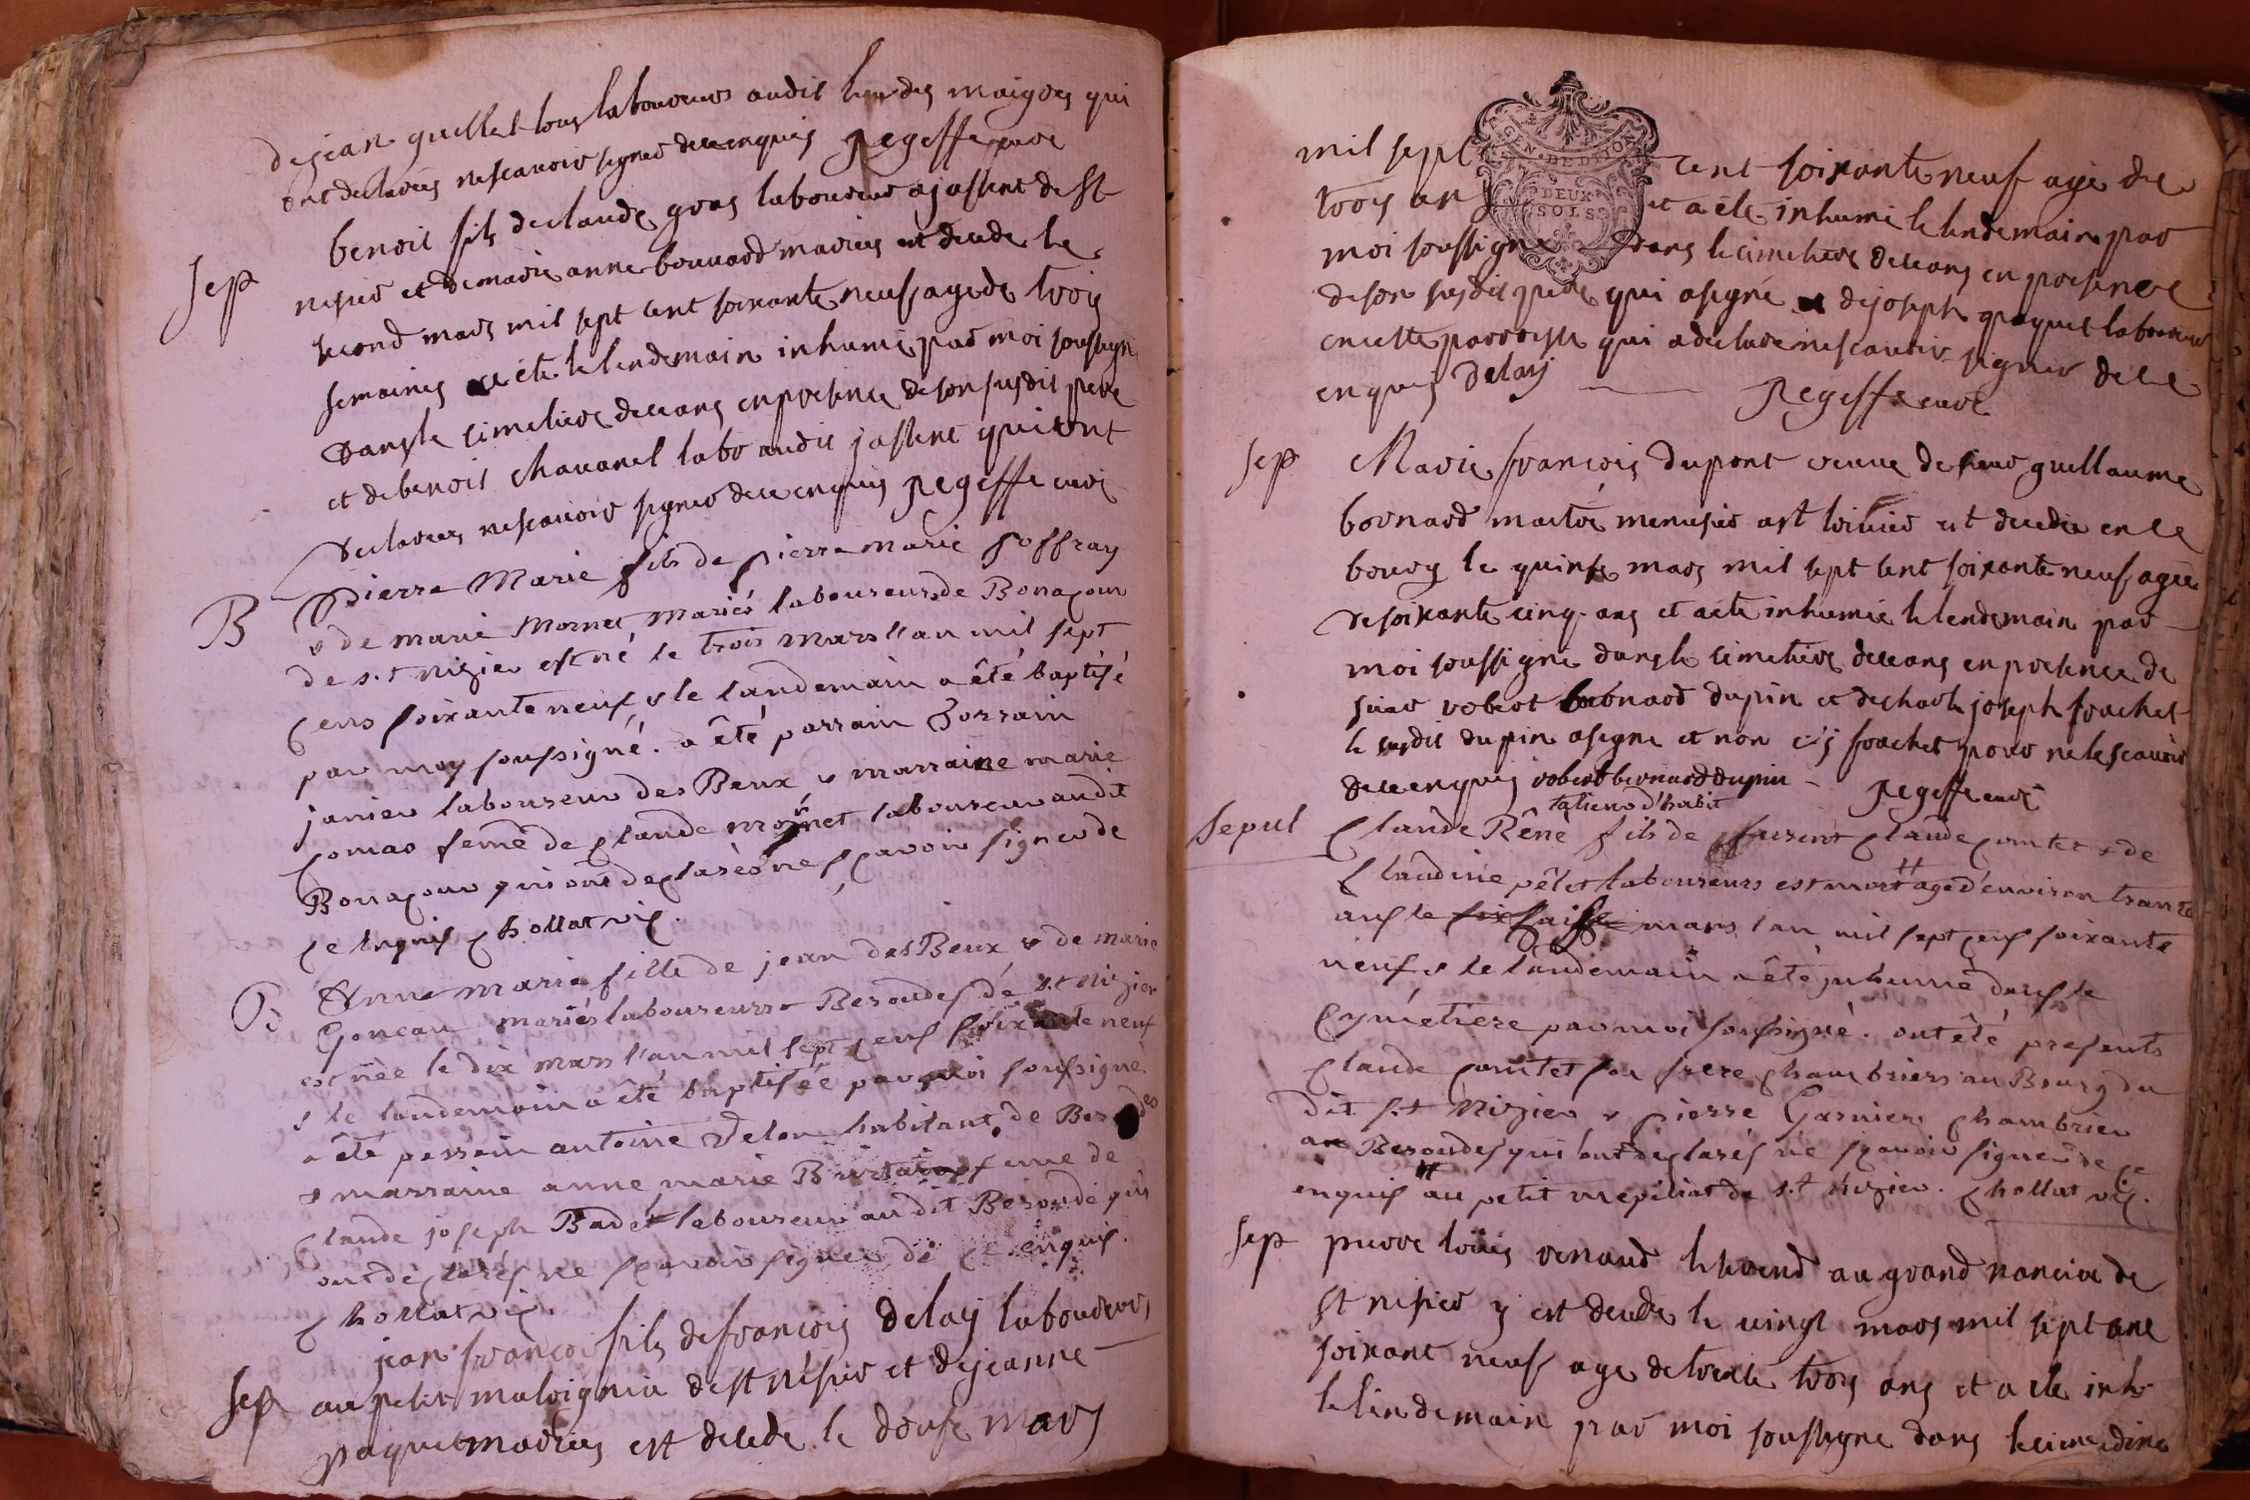 dejean guillet tous laboureurs audit lieu des maigres qui
ont declarées nescavoir signer dece enquis pegeffe cure
Sep
benoit fils declaude gras laboureur ajassent de St
nesier et demarie anne bouvard mariés est decede le
second mars mil sept cent soixante neuf age de trois
semaines et a été le lendemain inhumé par moi soussigné
dans le cimetiere deceans en presence de son susdit pere
et de benoit chavanel labo audit jassent qui ont
declarees nescavoir signer dece enquis pegeffe cure
B
Pierre Marie fils de pierre marie Joffray
& de marie Mornet mariés laboureurs de Bonacour
de s.t nizier est né le trois mars l'an mil sept
cens soixante neuf & le landemain a êté baptisé
par moy soussigné. a êté parrain
janier laboureur des Beux & marraine marie
comas feme de claude mornet laboureur audit
Bonacour qui ont declarés ne sçavoir signer de
ce enquis chollat vic.
B
Anne marie fille de jean des Beux & de marie
Goneau mariés laboureurs Besoudes de s.t Nizier
est née le dix mars l'an mil sept cens soixante neuf
& le landemain a êté baptisée par moi soussigné
a êté parrain antoine Delon habitant de
& marraine anne marie feme de
claude joseph Badet laboureur au dit qui
ont declarés ne sçavoir signer de ce enquis.
chollat vic.
Sep
jean francoi fils defrançois delay laboureur
au petit malvignieu de st nésier et dejeanne
paquet mariés est decede le douse mars
mil sept cent soixante neuf agé de
trois an et a été inhumé le lendemain par
moi soussigné dans le cimetiere deceans en presence
de son susdit pere qui a signé et dejoseph paquet laboureur
encette parroisse qui a declare nescavoir signer dece
enquis Delay pegeffe cure
GEN. DE DIJON
DEUX
SOLS
Sep
Marie françois dupont veuve de sieur guillaume
bornard maitre menusier est decedée en ce
bourg le quinse mars mil sept cent soixante neuf agée
de soixante cinq ans et a été inhumée le lendemain par
moi soussigné dans le cimetiere deceans en presence de
sieur robert bernard dupin et de charle joseph frachet
le susdit dupin a signé et non frachet pour ne le scavoir
dece enquis robert bernard dupin pegeffe cure
Sepul
tallieur d'habit
Claude Rêne fils de Claude comtet & de
Claudine pêlet laboureurs est mort agé d'environ trante
ans le mars l'an mil sept cens soixante
neuf & le landemain a êté inhumé dans le
cymétiere par moi soussigné. ont êté presents
claude comtet son frere chambrier au Bourg du
dit s.t Nizier & pierre Garnier chambrier
au Besoudes qui ont declarés ne sçavoir signer de ce
enquis au petit de s.t nizier. chollat vic.
Sep
pierre louis renaud au grand de
st nesier y est decede le vingt mars mil sept
soixant neuf age de trois ans et a été inh
le lindemain par moi soussigne dans